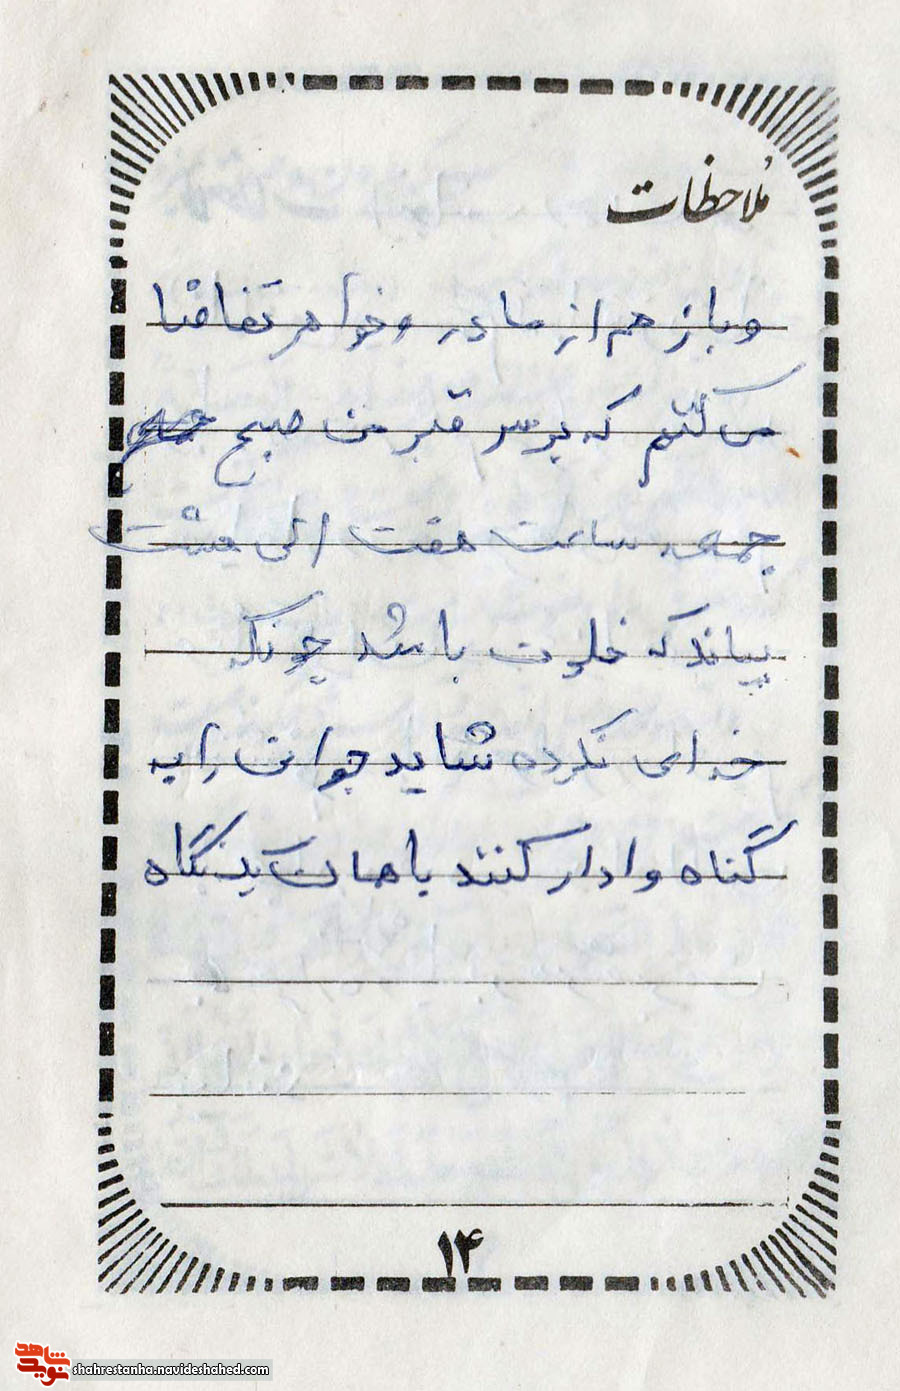 ملاحظات
و باز هم از مادر و خواهر تقاضا
می کنم که بر سر قبر من صبح
جمعه ساعت هفت الی هشت
بیاند که خلوت باشد چونکه
خدای نکرده شاید جوانی را به
گناه وادار کنند با همان یک نگاه
۱۴
نوید شاهد
shahrestanha.navideshahed.com